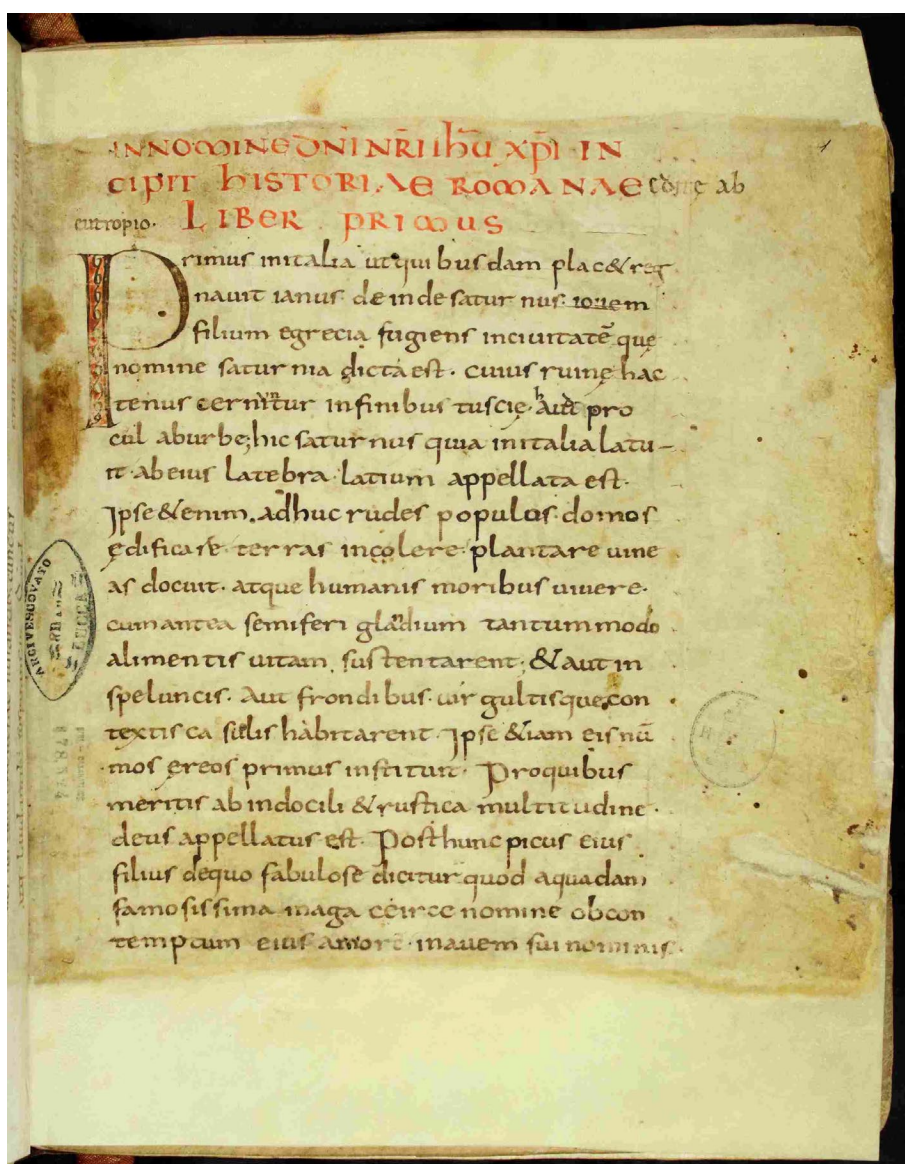 INNOMINE DNI NRI IHU XPI IN
CIPIT HISTORIAE ROMANAE edite ab
eutropio. LIBER PRIMUS
Primus initalia ut quibusdam plac& reg
navit ianus deinde saturnus iouem
filium egrecia fugiens inciuitatē que
nomine saturnia dicta est. cuius ruine hac
tenus cernuntur infinibus tuscię. haut pro
cul aburbe; hic saturnus quia initalia latu-
it. ab eius latebra. latium appellata est.
Ipse &enim. adhuc rudes populos domos
ędificare. terras incolere. plantare uine
as docuit. atque humanis moribus uiuere.
cum antea semiferi glandium tantummodo
alimentis uitam sustentarent; & aut in
speluncis. Aut frondibus. uirgultisque con
textis casulis habitarent. Ipse &iam eis nū
mos ęreos primus instituit. Proquibus
meritis ab indocili & rustica multitudine.
deus appellatus est. Post hunc picus eius
filius dequo fabulose dicitur quod aquadam
famosissima maga ceirce nomine obcon
temptum eius amoris. inauem sui nominis.
1
ARCHIVIO
LUCCA